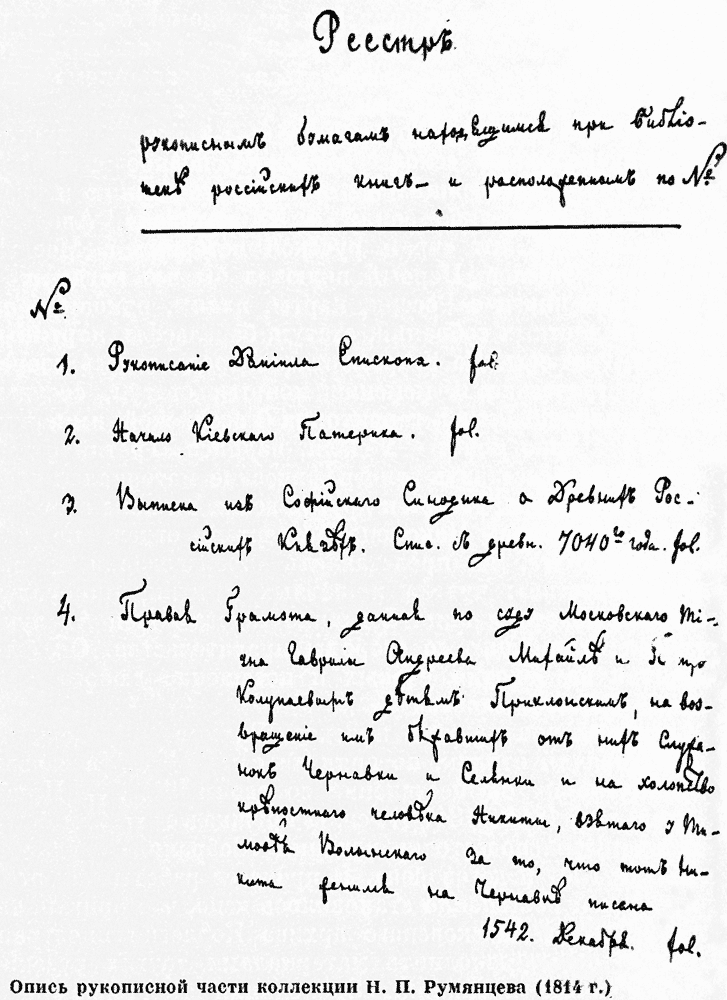 Реестръ
рукописнымъ бумагамъ находящимся при Библіо-
текѣ россійскихъ книгъ— и расположеннымъ по №
№
1. Рукописаніе Даніила Епископа. fol.
2. Начало Кіевскаго Патерика. fol.
3. Выписка изъ Софійскаго Синодика о Древнихъ Рос-
сійскихъ Князьяхъ. Спис. съ древн. 7040го года. fol.
4. Правая Грамота, данная по суду Московскаго Ті-
уна Гаврила Андреева Михайлѣ и
Колупаевымъ дѣтямъ Приклонскимъ, на воз-
вращеніе имъ бѣжавшихъ отъ нихъ Служа-
нокъ Чернавки и Селянки и на холопство
крѣпостнаго человѣка Никиты, взятаго у Ти-
моѳѣя Волынскаго за то, что тотъ Ни-
кита женился на Чернавкѣ писана
1542. Декабря. fol.
Опись рукописной части коллекции Н. П. Румянцева (1814 г.)